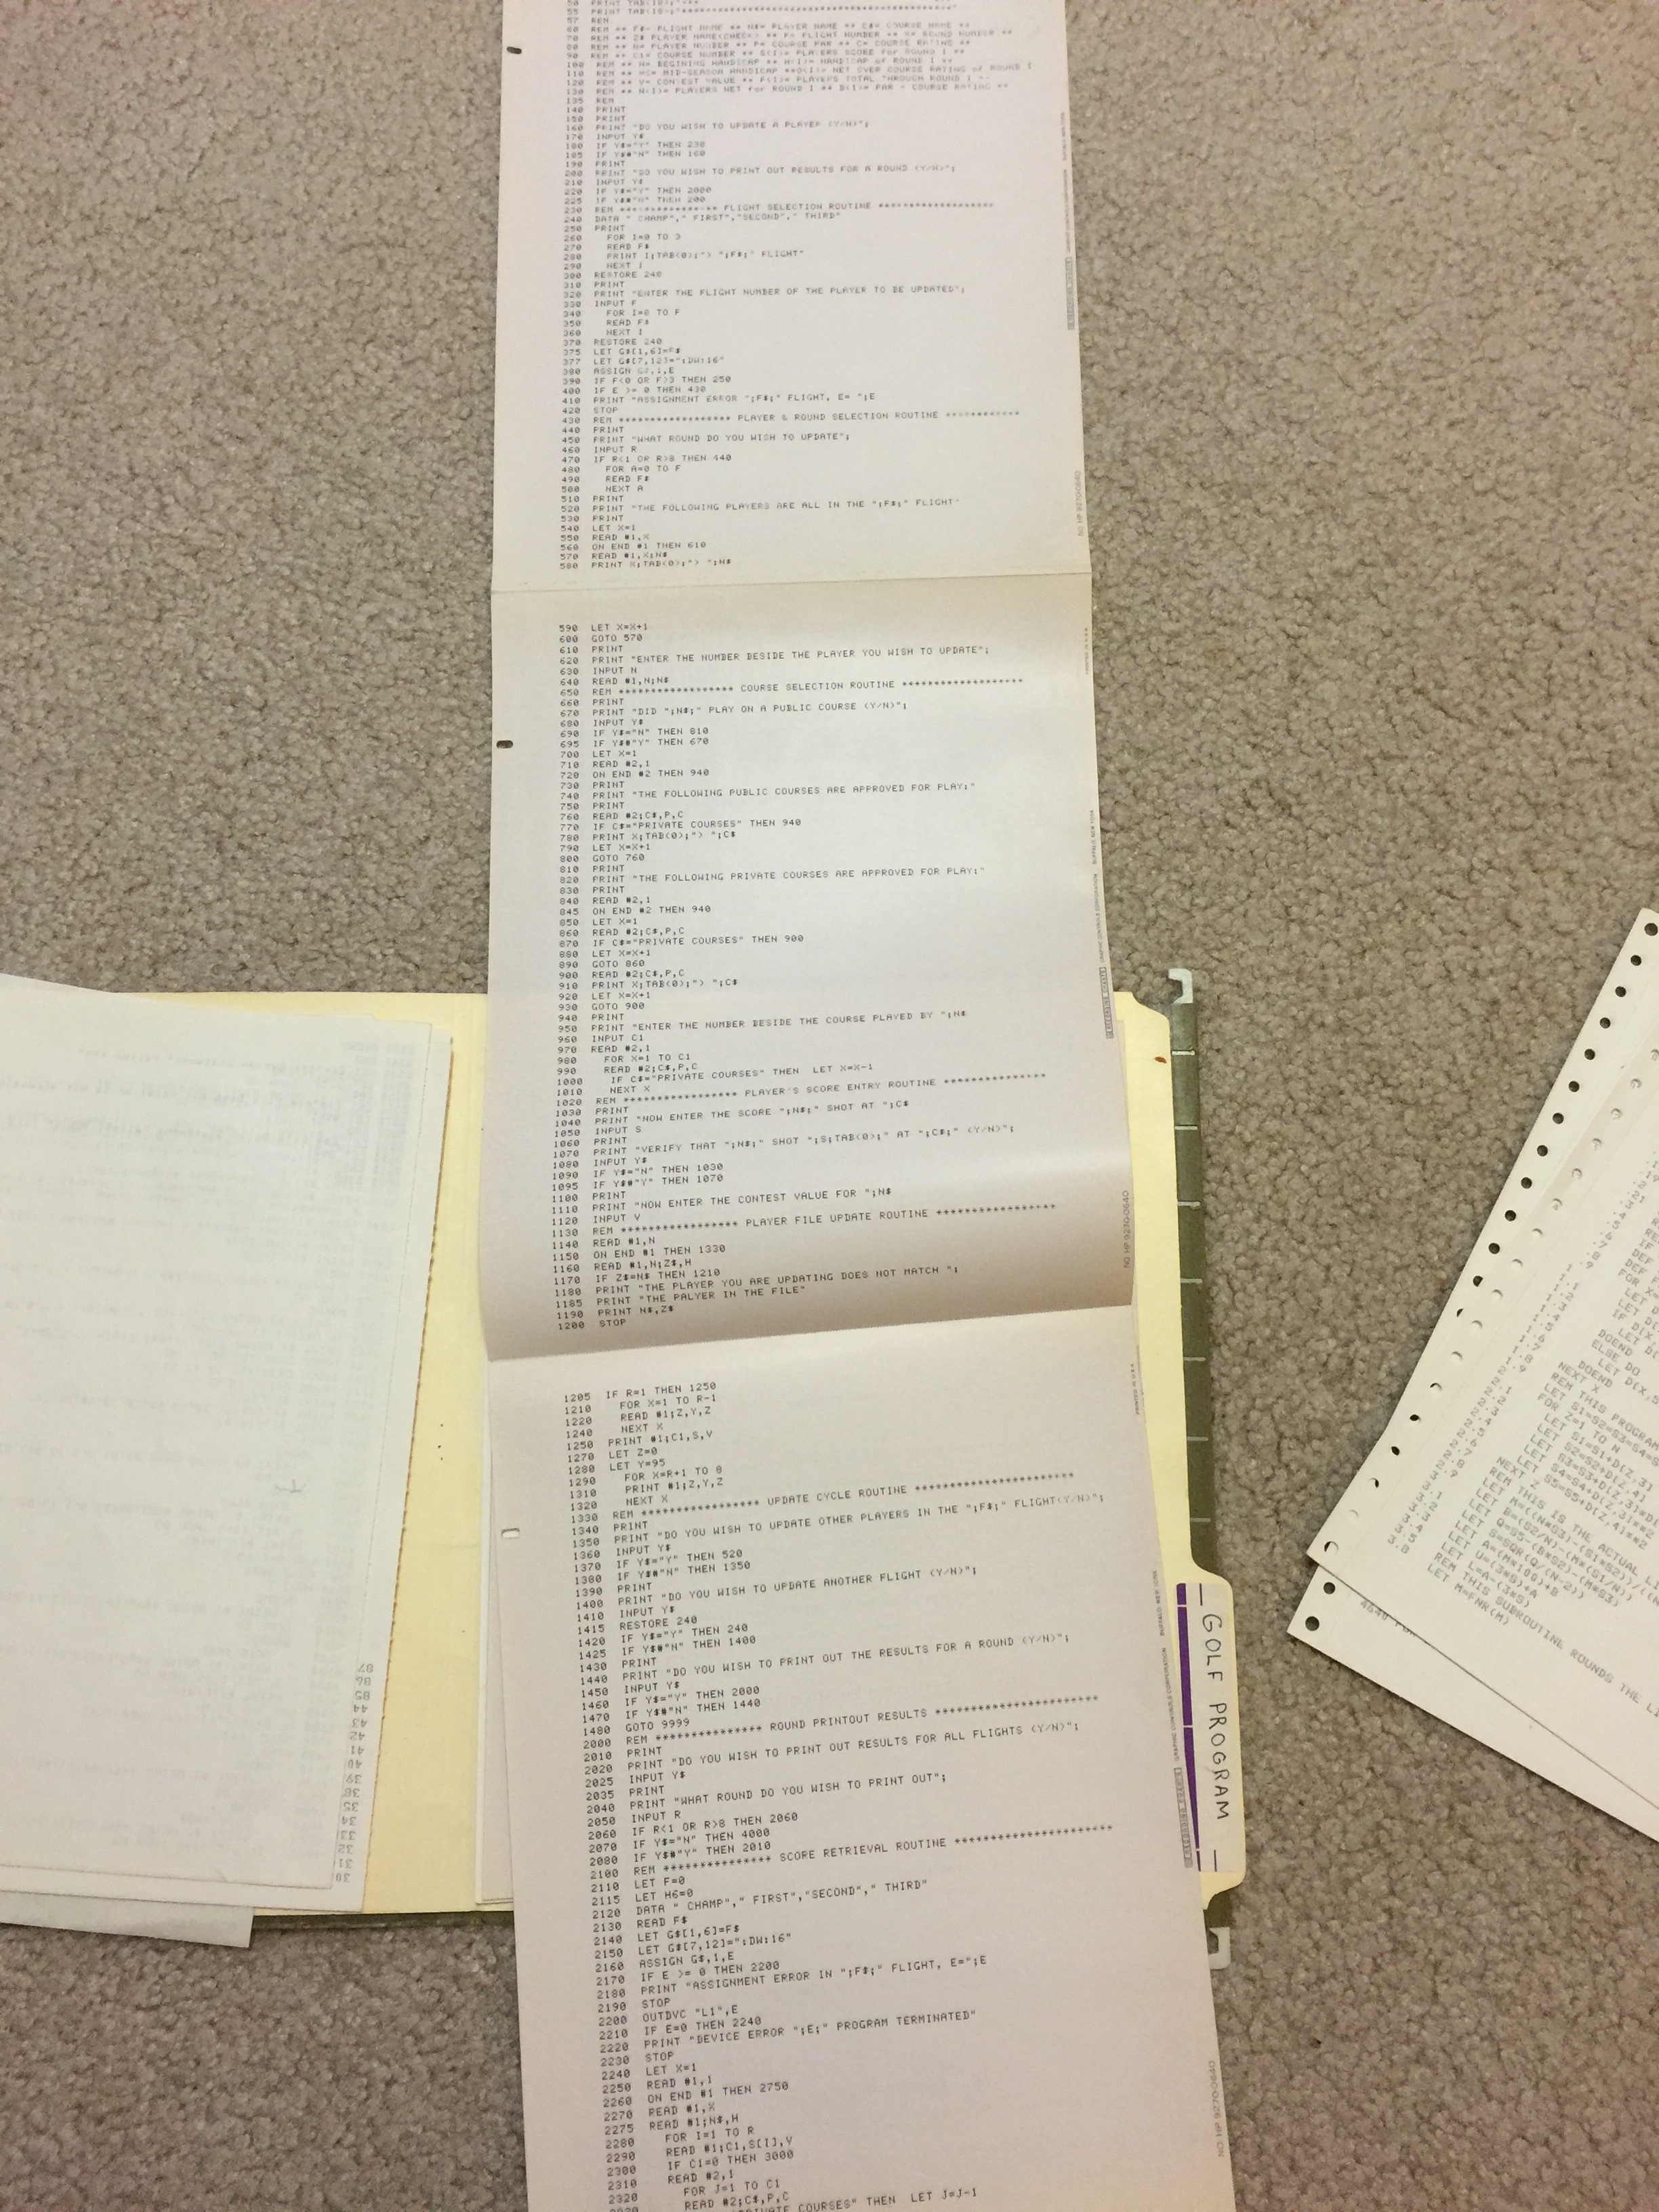 55 PRINT TAB(18);"****************************************"
57 REM
60 REM ** F$= FLIGHT NAME ** N$= PLAYER NAME ** C$= COURSE NAME **
70 REM ** Z$ PLAYER NAME(CHECK) ** F= FLIGHT NUMBER ** R= ROUND NUMBER **
80 REM ** N= PLAYER NUMBER ** P= COURSE PAR ** C= COURSE RATING **
90 REM ** C1= COURSE NUMBER ** S(I)= PLAYERS SCORE for ROUND I **
100 REM ** H= BEGINING HANDICAP ** H(I)= HANDICAP of ROUND I **
110 REM ** H5= MID-SEASON HANDICAP **O(I)= NET OVER COURSE RATING of ROUND I
120 REM ** V= CONTEST VALUE ** P(I)= PLAYERS TOTAL THROUGH ROUND I **
130 REM ** N(I)= PLAYERS NET for ROUND I ** D(I)= PAR - COURSE RATING **
135 REM
140 PRINT
150 PRINT
160 PRINT "DO YOU WISH TO UPDATE A PLAYER (Y/N)";
170 INPUT Y$
180 IF Y$="Y" THEN 230
185 IF Y$#"N" THEN 160
190 PRINT
200 PRINT "DO YOU WISH TO PRINT OUT RESULTS FOR A ROUND (Y/N)";
210 INPUT Y$
220 IF Y$="Y" THEN 2000
225 IF Y$#"N" THEN 200
230 REM ***************** FLIGHT SELECTION ROUTINE ********************
240 DATA " CHAMP"," FIRST","SECOND"," THIRD"
250 PRINT
260 FOR I=0 TO 3
270 READ F$
280 PRINT I;TAB(0);"> ";F$;" FLIGHT"
290 NEXT I
300 RESTORE 240
310 PRINT
320 PRINT "ENTER THE FLIGHT NUMBER OF THE PLAYER TO BE UPDATED";
330 INPUT F
340 FOR I=0 TO F
350 READ F$
360 NEXT I
370 RESTORE 240
375 LET G$[1,6]=F$
377 LET G$[7,12]=":DW:16"
380 ASSIGN G$,1,E
390 IF F<0 OR F>3 THEN 250
400 IF E >= 0 THEN 430
410 PRINT "ASSIGNMENT ERROR ";F$;" FLIGHT, E= ";E
420 STOP
430 REM ****************** PLAYER & ROUND SELECTION ROUTINE ************
440 PRINT
450 PRINT "WHAT ROUND DO YOU WISH TO UPDATE";
460 INPUT R
470 IF R<1 OR R>8 THEN 440
480 FOR A=0 TO F
490 READ F$
500 NEXT A
510 PRINT
520 PRINT "THE FOLLOWING PLAYERS ARE ALL IN THE ";F$;" FLIGHT"
530 PRINT
540 LET X=1
550 READ #1,X
560 ON END #1 THEN 610
570 READ #1,X;N$
580 PRINT X;TAB(0);"> ";N$
590 LET X=X+1
600 GOTO 570
610 PRINT
620 PRINT "ENTER THE NUMBER BESIDE THE PLAYER YOU WISH TO UPDATE";
630 INPUT N
640 READ #1,N;N$
650 REM ****************** COURSE SELECTION ROUTINE *******************
660 PRINT
670 PRINT "DID ";N$;" PLAY ON A PUBLIC COURSE (Y/N)";
680 INPUT Y$
690 IF Y$="N" THEN 810
695 IF Y$#"Y" THEN 670
700 LET X=1
710 READ #2,1
720 ON END #2 THEN 940
730 PRINT
740 PRINT "THE FOLLOWING PUBLIC COURSES ARE APPROVED FOR PLAY:"
750 PRINT
760 READ #2;C$,P,C
770 IF C$="PRIVATE COURSES" THEN 940
780 PRINT X;TAB(0);"> ";C$
790 LET X=X+1
800 GOTO 760
810 PRINT
820 PRINT "THE FOLLOWING PRIVATE COURSES ARE APPROVED FOR PLAY:"
830 PRINT
840 READ #2,1
845 ON END #2 THEN 940
850 LET X=1
860 READ #2;C$,P,C
870 IF C$="PRIVATE COURSES" THEN 900
880 LET X=X+1
890 GOTO 860
900 READ #2;C$,P,C
910 PRINT X;TAB(0);"> ";C$
920 LET X=X+1
930 GOTO 900
940 PRINT
950 PRINT "ENTER THE NUMBER BESIDE THE COURSE PLAYED BY ";N$
960 INPUT C1
970 READ #2,1
980 FOR X=1 TO C1
990 READ #2;C$,P,C
1000 IF C$="PRIVATE COURSES" THEN LET X=X-1
1010 NEXT X
1020 REM ****************** PLAYER'S SCORE ENTRY ROUTINE ****************
1030 PRINT
1040 PRINT "NOW ENTER THE SCORE ";N$;" SHOT AT ";C$
1050 INPUT S
1060 PRINT
1070 PRINT "VERIFY THAT ";N$;" SHOT ";S;TAB(0);" AT ";C$;" (Y/N)";
1080 INPUT Y$
1090 IF Y$="N" THEN 1030
1095 IF Y$#"Y" THEN 1070
1100 PRINT
1110 PRINT "NOW ENTER THE CONTEST VALUE FOR ";N$
1120 INPUT V
1130 REM ****************** PLAYER FILE UPDATE ROUTINE ******************
1140 READ #1,N
1150 ON END #1 THEN 1330
1160 READ #1,N;Z$,H
1170 IF Z$=N$ THEN 1210
1180 PRINT "THE PLAYER YOU ARE UPDATING DOES NOT MATCH ";
1185 PRINT "THE PALYER IN THE FILE"
1190 PRINT N$,Z$
1200 STOP
1205 IF R=1 THEN 1250
1210 FOR X=1 TO R-1
1220 READ #1;Z,Y,Z
1240 NEXT X
1250 PRINT #1;C1,S,V
1270 LET Z=0
1280 LET Y=95
1290 FOR X=R+1 TO 8
1310 PRINT #1;Z,Y,Z
1320 NEXT X
1330 REM ***************** UPDATE CYCLE ROUTINE ************************
1340 PRINT
1350 PRINT "DO YOU WISH TO UPDATE OTHER PLAYERS IN THE ";F$;" FLIGHT(Y/N)";
1360 INPUT Y$
1370 IF Y$="Y" THEN 520
1380 IF Y$#"N" THEN 1350
1390 PRINT
1400 PRINT "DO YOU WISH TO UPDATE ANOTHER FLIGHT (Y/N)";
1410 INPUT Y$
1415 RESTORE 240
1420 IF Y$="Y" THEN 240
1425 IF Y$#"N" THEN 1400
1430 PRINT
1440 PRINT "DO YOU WISH TO PRINT OUT THE RESULTS FOR A ROUND (Y/N)";
1450 INPUT Y$
1460 IF Y$="Y" THEN 2000
1470 IF Y$#"N" THEN 1440
1480 GOTO 9999
2000 REM *************** ROUND PRINTOUT RESULTS ***********************
2010 PRINT
2020 PRINT "DO YOU WISH TO PRINT OUT RESULTS FOR ALL FLIGHTS (Y/N)";
2025 INPUT Y$
2035 PRINT
2040 PRINT "WHAT ROUND DO YOU WISH TO PRINT OUT";
2050 INPUT R
2060 IF R<1 OR R>8 THEN 2060
2070 IF Y$="N" THEN 4000
2080 IF Y$#"Y" THEN 2010
2100 REM *************** SCORE RETRIEVAL ROUTINE **********************
2110 LET F=0
2115 LET H6=0
2120 DATA " CHAMP"," FIRST","SECOND"," THIRD"
2130 READ F$
2140 LET G$[1,6]=F$
2150 LET G$[7,12]=":DW:16"
2160 ASSIGN G$,1,E
2170 IF E >= 0 THEN 2200
2180 PRINT "ASSIGNMENT ERROR IN ";F$;" FLIGHT, E=";E
2190 STOP
2200 OUTDVC "L1",E
2210 IF E=0 THEN 2240
2220 PRINT "DEVICE ERROR ";E;" PROGRAM TERMINATED"
2230 STOP
2240 LET X=1
2250 READ #1,1
2260 ON END #1 THEN 2750
2270 READ #1,X
2275 READ #1;N$,H
2280 FOR I=1 TO R
2290 READ #1;C1,S[I],V
2300 IF C1=0 THEN 3000
2310 READ #2,1
2320 FOR J=1 TO C1
READ #2;C$,P,C
COURSES" THEN LET J=J-1
GOLF PROGRAM
NO. HP 9270-0640
GRAPHIC CONTROLS CORPORATION BUFFALO, NEW YORK
PRINTED IN U.S.A.
NEXT X
REM THIS PROGRAM
LET S1=S2=S3=S4=S
FOR Z=1 TO N
LET S1=S1+D(Z,3)
LET S2=S2+D(Z,4)
NEXT Z
REM THIS IS THE ACTUAL LI
REM THIS SUBROUTINE ROUNDS THE LI
LET M=FNR(M)